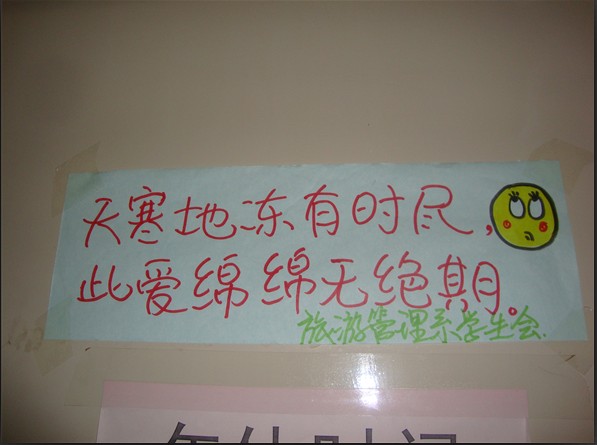 天寒地冻有时尽，
此爱绵绵无绝期。
旅游管理系学生会.